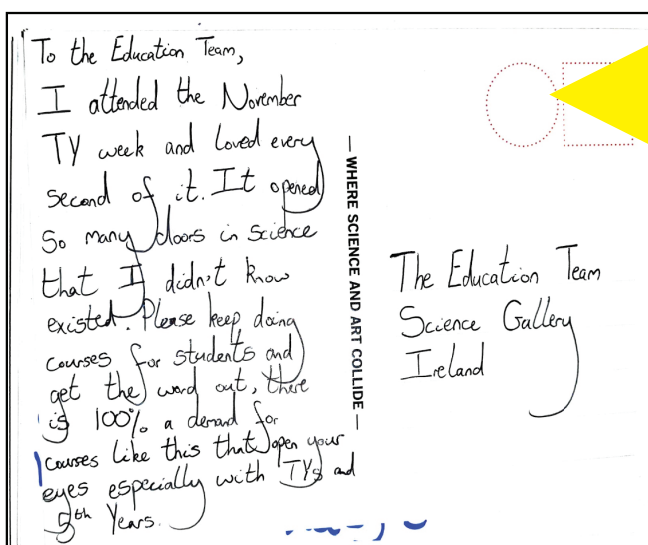 To the Education Team,
I attended the November
TY week and loved every
second of it. It opened
So many doors in science
that I didn't know
existed. Please keep doing
courses for students and
get the word out, there
is 100% a demand for
courses like this that open your
eyes especially with TYs and
5th Years.
— WHERE SCIENCE AND ART COLLIDE —
The Education Team
Science Gallery
Ireland